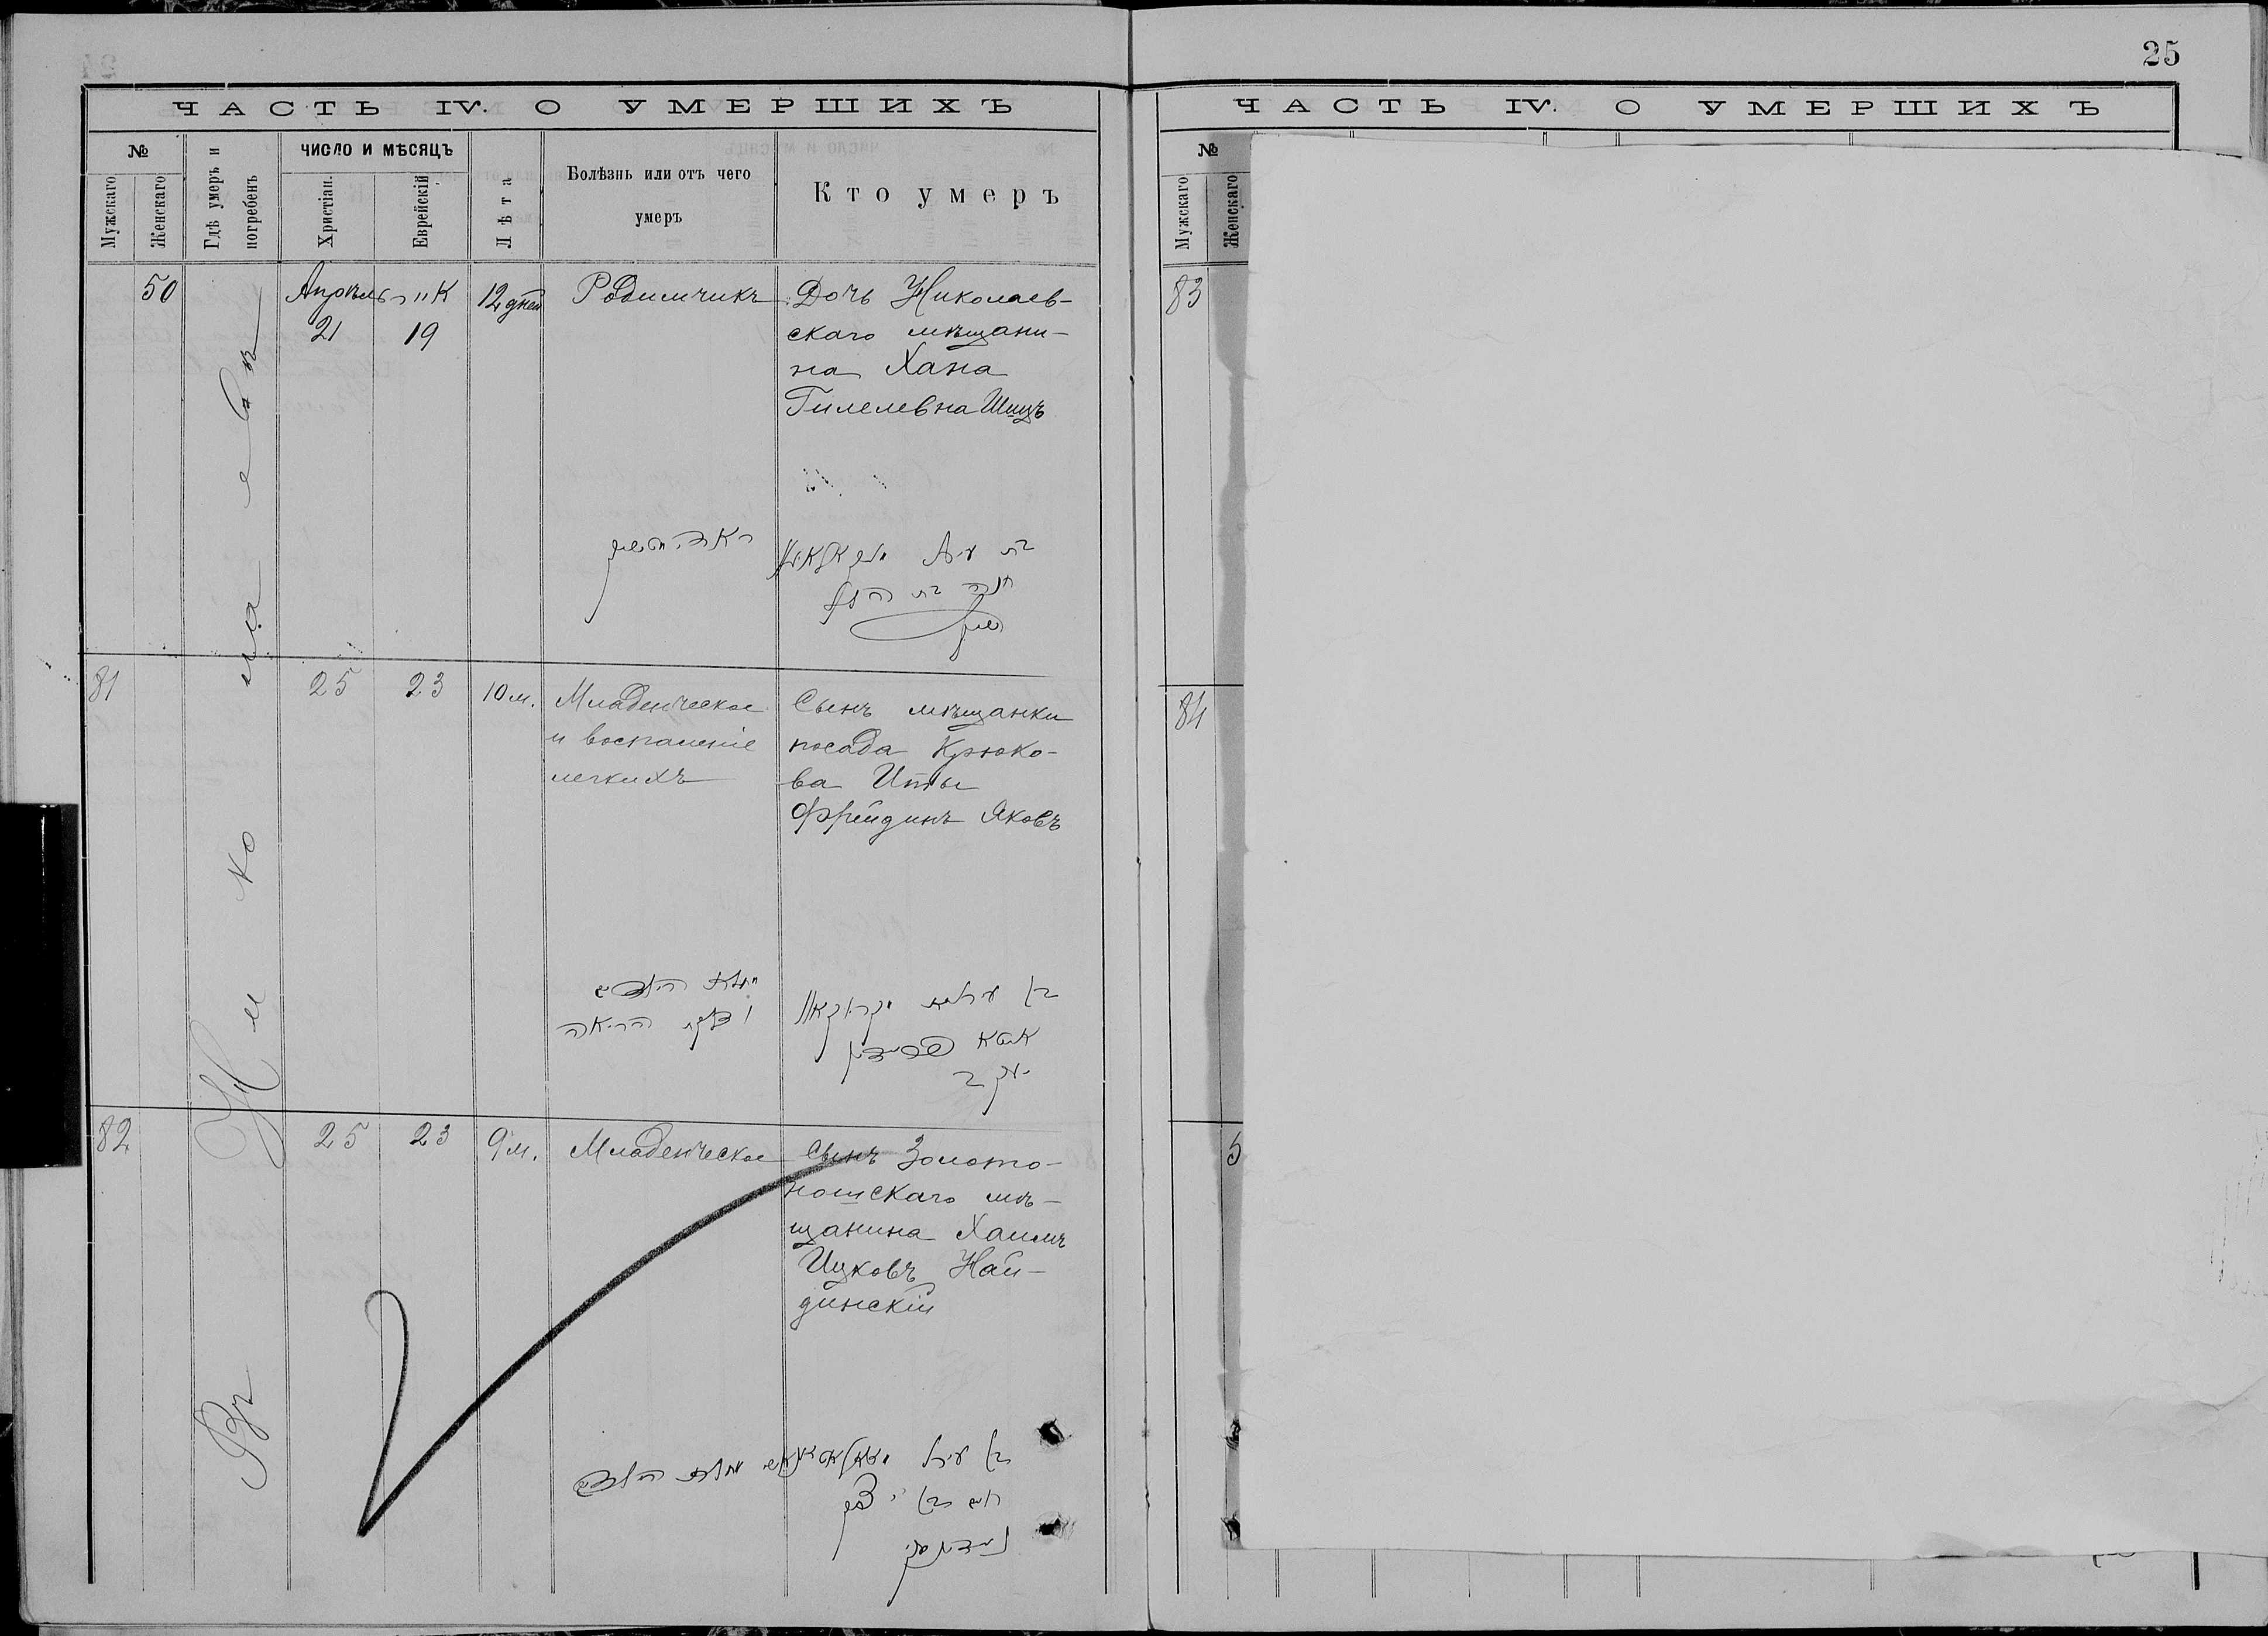 25
ЧАСТЬ IV. О УМЕРШИХЪ
№
Мужскаго
Женскаго
Гдѣ умеръ и
погребенъ
ЧИСЛО И МѢСЯЦЪ
Христіан.
Еврейскій
Лѣта
Болѣзнь или отъ чего
умеръ
Кто умеръ
Въ Николаевѣ
50
Апрѣль
21
19
12 дней
Родимчикъ
Дочь Николаев-
скаго мѣщани-
на Хана
Гилелевна Шицъ
חנה בת הלל
81
25
23
10 м.
Младенческое
и воспаленіе
легкихъ
Сынъ мѣщанки
посада Крюко-
ва Иты
Фрейдинъ Яковъ
הריאה
יעקב
82
25
23
9 м.
Младенческое
Сынъ Золото-
ношскаго мѣ-
щанина Хаимъ
Ицковъ Най-
динскій
ЧАСТЬ IV. О УМЕРШИХЪ
№
Мужскаго
Женскаго
83
84
5